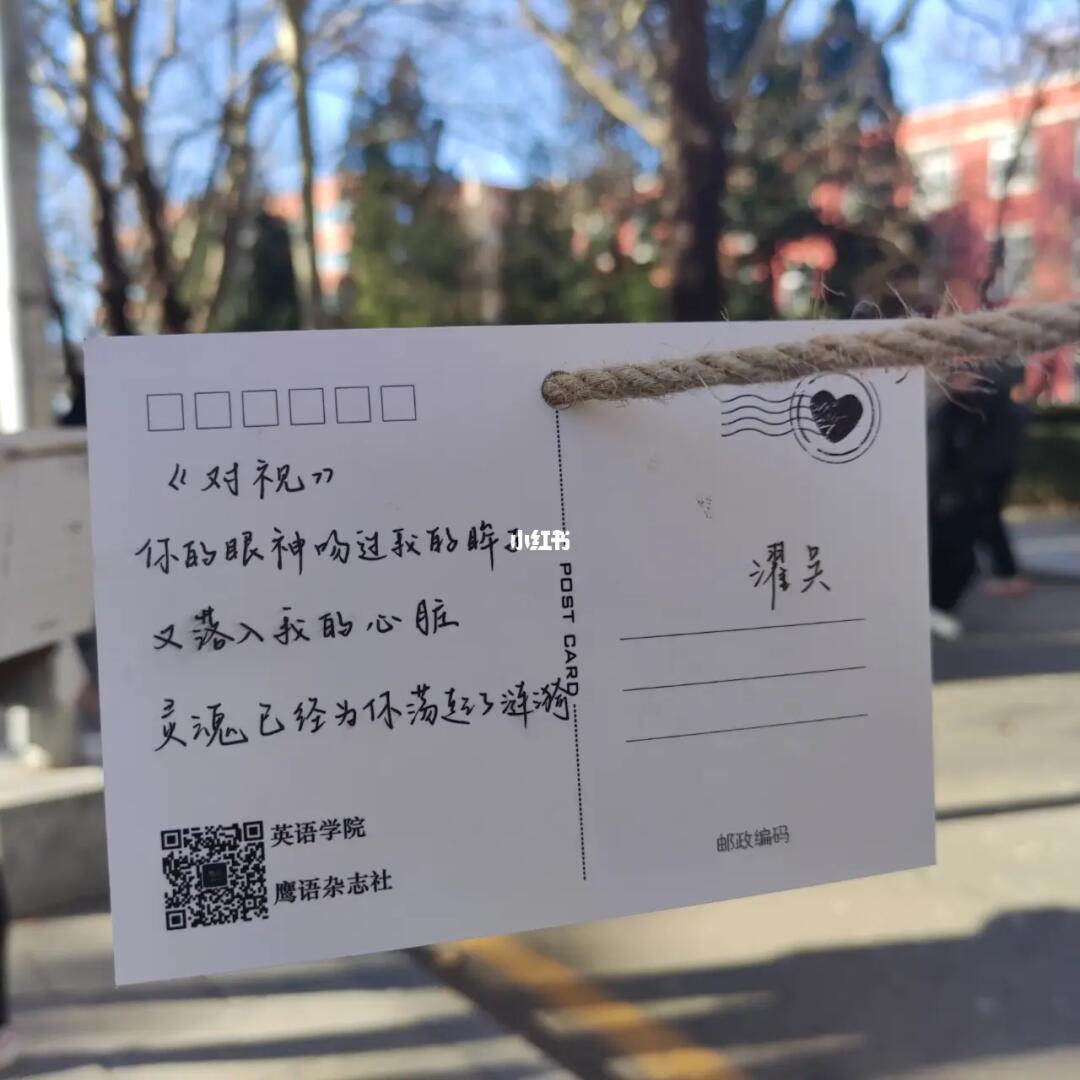 《对视》
你的眼神吻过我的眸
小红书
又落入我的心脏
灵魂已经为你荡起了涟漪
英语学院
鹰语杂志社
POST CARD
濯吴
邮政编码